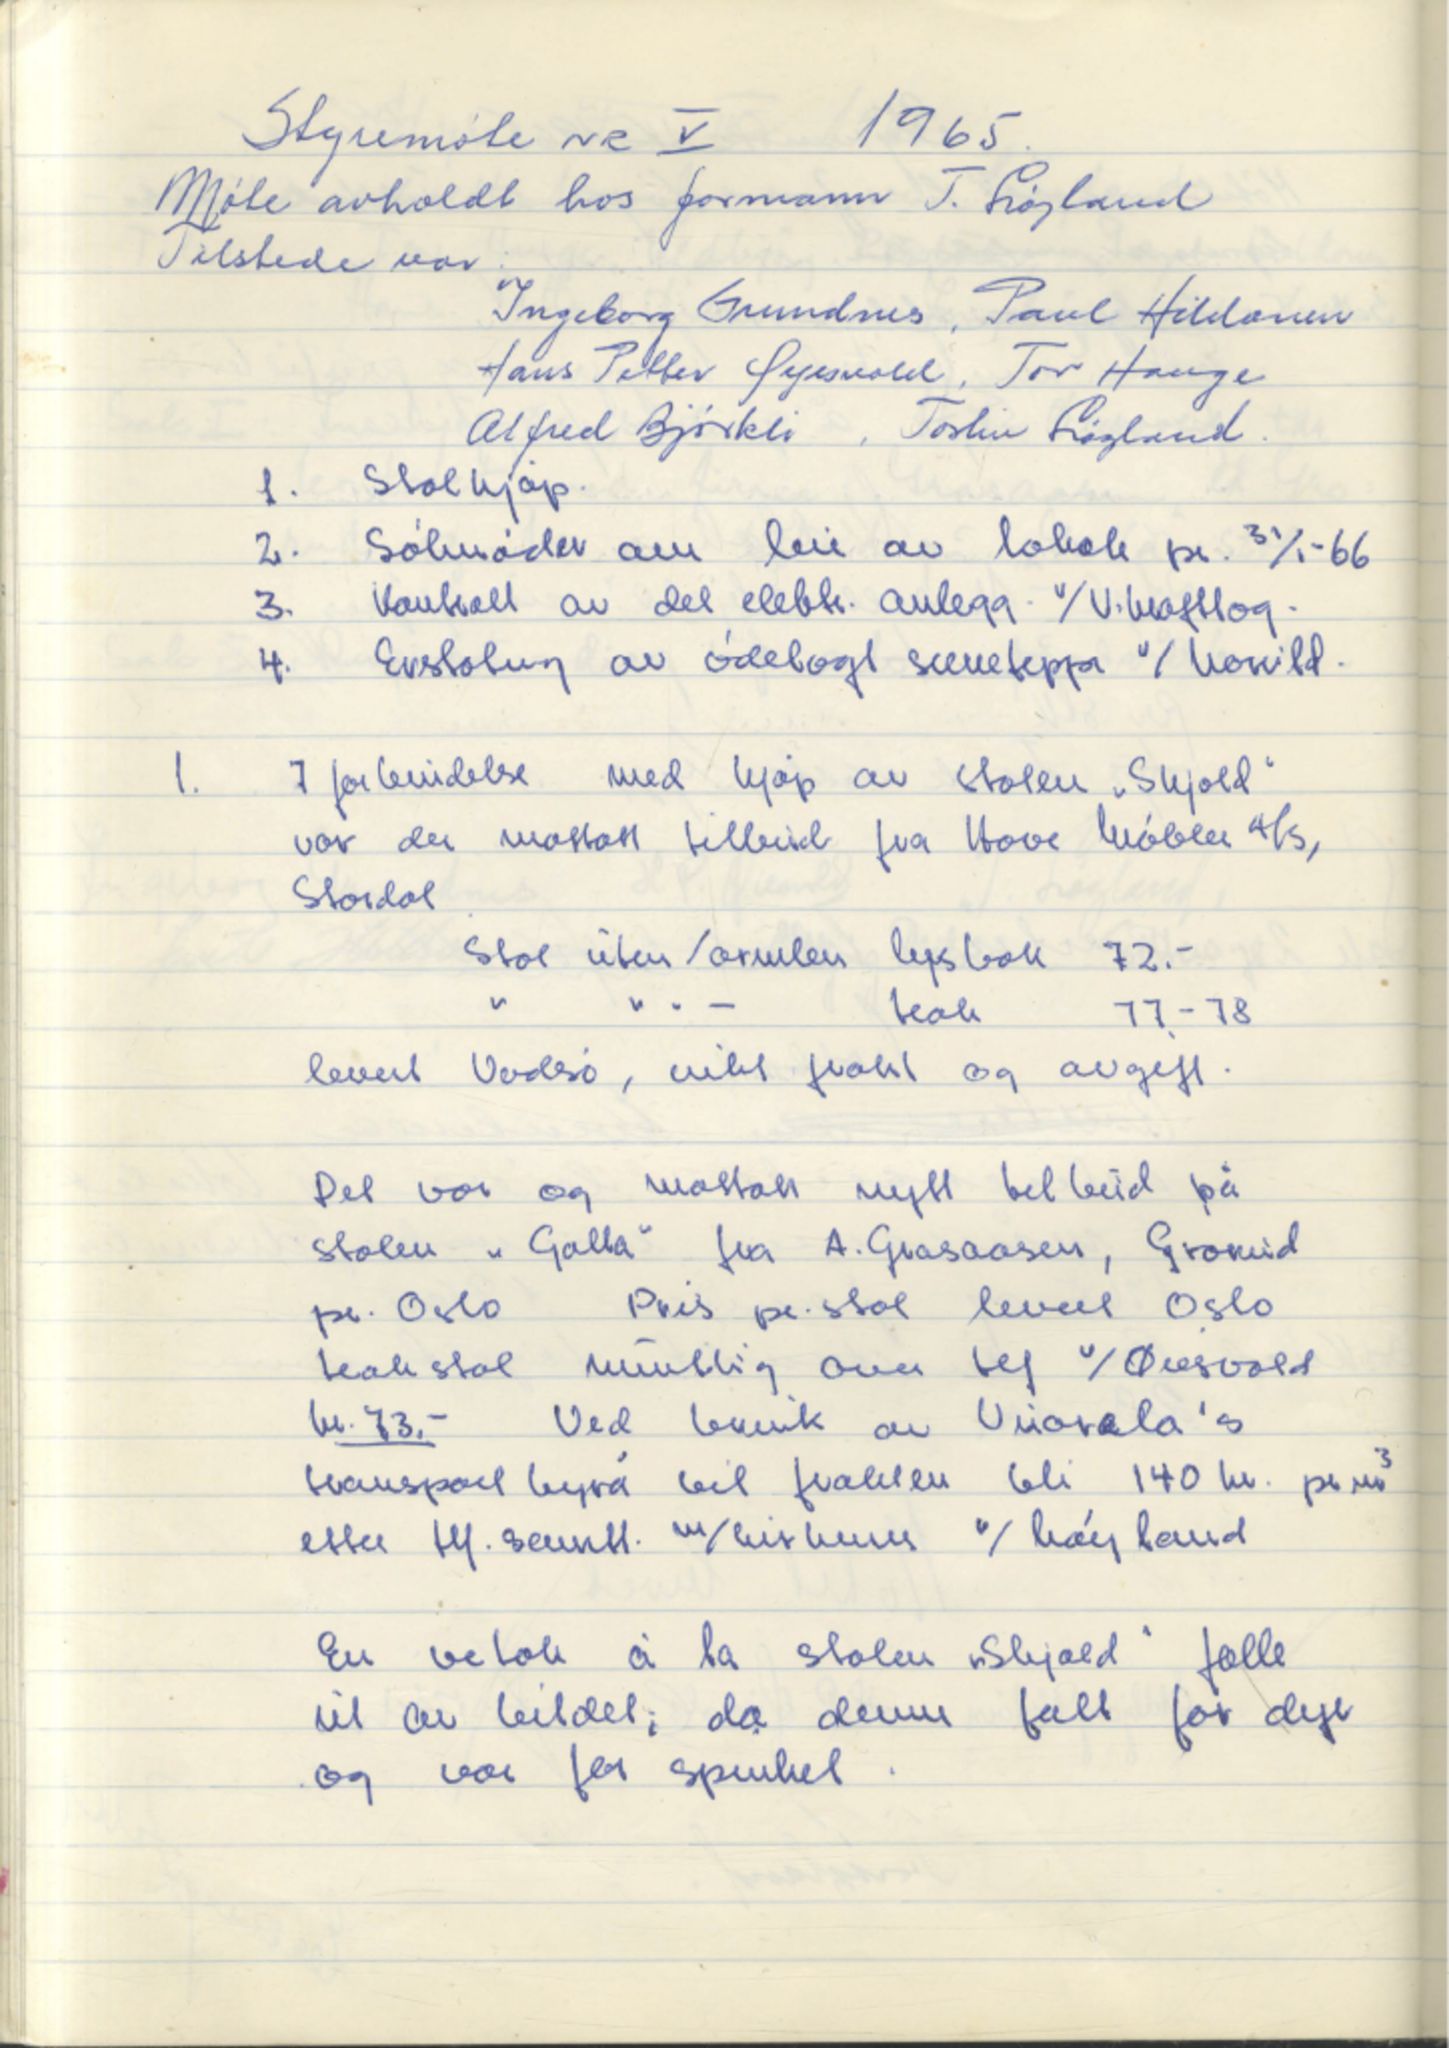 Styremöte nr V 1965.
Möte avholdt hos formann T. Lögland
Tilstede var:
Ingeborg Grundnes, Paul Hildonen
Hans Petter Øyesvold, Tor Hauge
Alfred Björkli, Tostein Lögland.
1. Stolkjöp.
2. Söknader om leie av lokale pr. 31/1-66
3. Kontroll av det elektr. anlegg v/V. kraftlag.
4. Erstatning av ödelagt sceneteppe v/
1. I forbindelse med kjöp av stolen „Skjold"
var der mottatt tilbud fra Hove Möbler A/S,
Stordal
Stol uten/armlen lysbok 72.-
" " " — teak 77.- 78
levert Vadsö, inkl frakt og avgift.
Det var og mottatt nytt tilbud på
stolen „Galta" fra A. Grasaasen, Grorud
pr. Oslo Pris pr. stol levert Oslo
teakstol muntlig over tlf v/Øiesvold
kr. 73.- Ved bruk av
transportbyrå vil frakten bli 140 kr. pr m³
etter tlf. samt. m/ v/Lögland
En vetok å la stolen „Skjold" falle
ut av bildet; da denne falt for dyr
og var for spinkel.